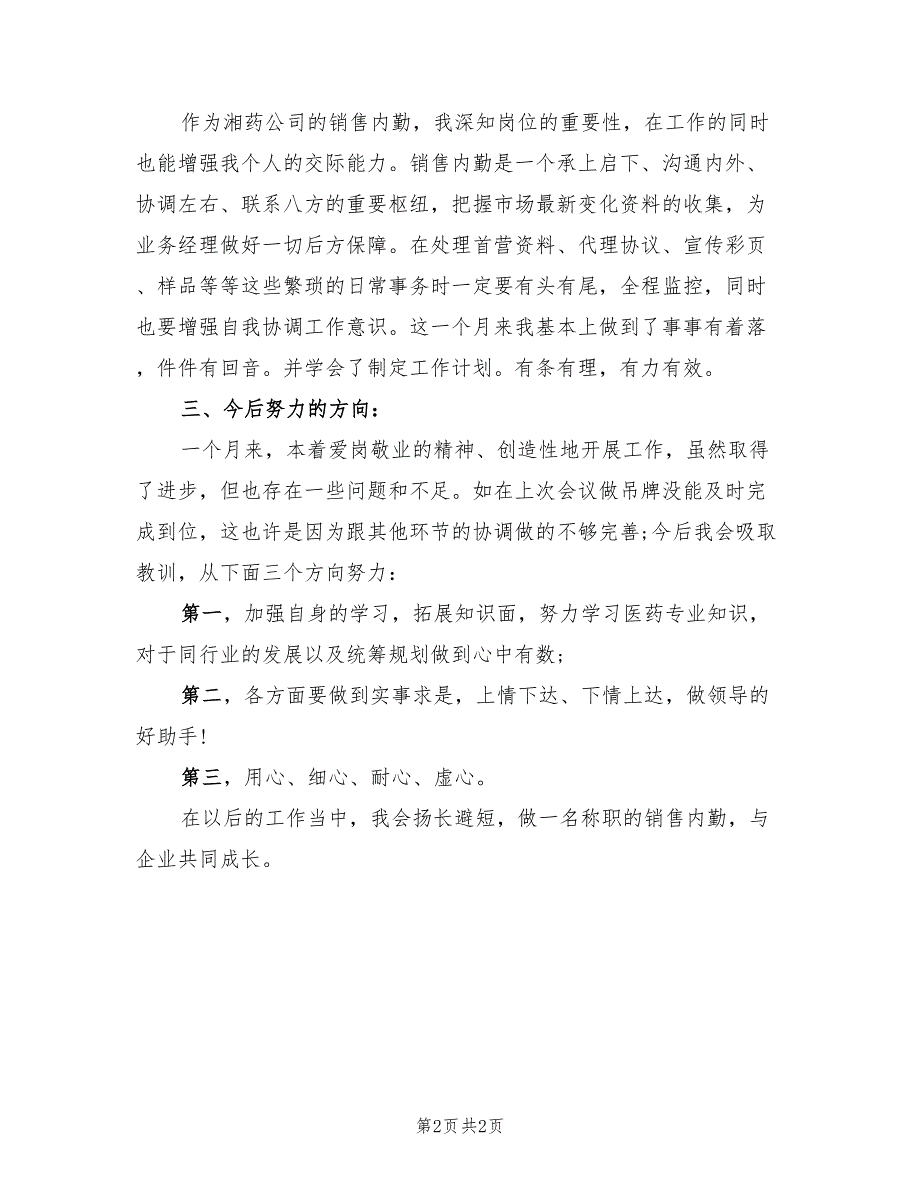 作为湘药公司的销售内勤，我深知岗位的重要性，在工作的同时
也能增强我个人的交际能力。销售内勤是一个承上启下、沟通内外、
协调左右、联系八方的重要枢纽，把握市场最新变化资料的收集，为
业务经理做好一切后方保障。在处理首营资料、代理协议、宣传彩页
、样品等等这些繁琐的日常事务时一定要有头有尾，全程监控，同时
也要增强自我协调工作意识。这一个月来我基本上做到了事事有着落
，件件有回音。并学会了制定工作计划。有条有理，有力有效。
三、今后努力的方向：
一个月来，本着爱岗敬业的精神、创造性地开展工作，虽然取得
了进步，但也存在一些问题和不足。如在上次会议做吊牌没能及时完
成到位，这也许是因为跟其他环节的协调做的不够完善;今后我会吸取
教训，从下面三个方向努力：
第一，加强自身的学习，拓展知识面，努力学习医药专业知识，
对于同行业的发展以及统筹规划做到心中有数;
第二，各方面要做到实事求是，上情下达、下情上达，做领导的
好助手!
第三，用心、细心、耐心、虚心。
在以后的工作当中，我会扬长避短，做一名称职的销售内勤，与
企业共同成长。
第2页 共2页